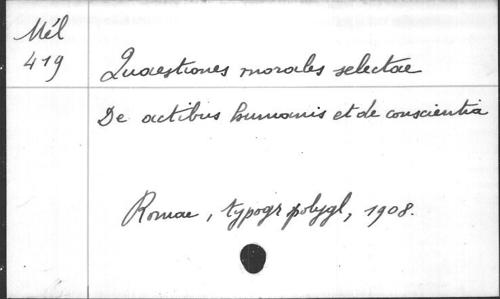 Mél
419
Quaestiones morales selectae
De actibus humanis et de conscientia
Romae, typogr polygl, 1908.